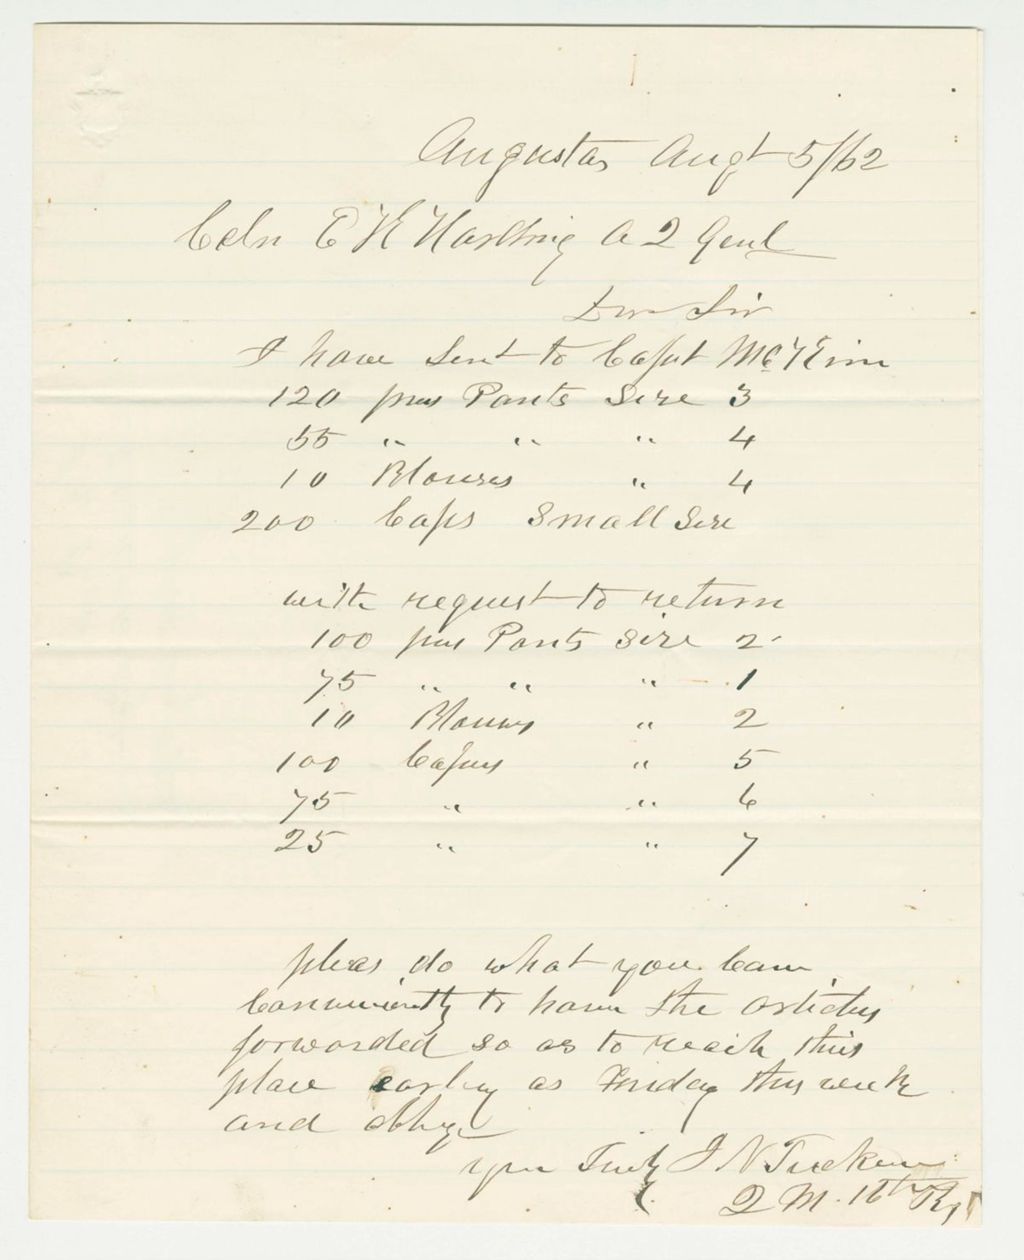 Augusta Augt 5/62
Coln E K Harding A Q Genl
Dear Sir
I have Sent to Capt McKim
120 prs Pants Size 3
55 " " " 4
10 Blouses " 4
200 Caps Small Size
with request to return
100 prs Pants Size 2
75 " " " 1
10 Blouses " 2
100 Caps " 5
75 " " 6
25 " " 7
pleas do what you Can
Conveniently to have the articles
forwarded so as to reach this
place early as Friday this week
and oblige
your Truly I N Tucker
Q M. 16th Rgt